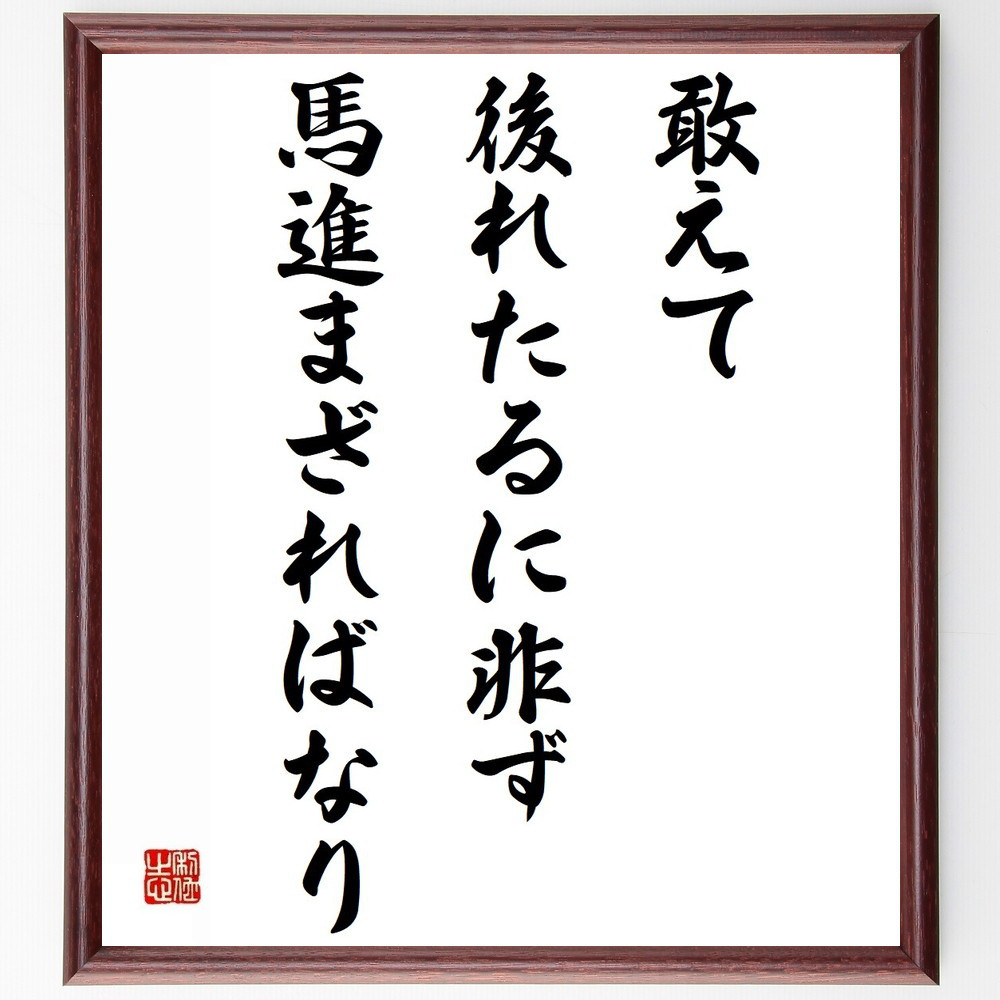 敢えて
後れたるに非ず
馬進まざればなり